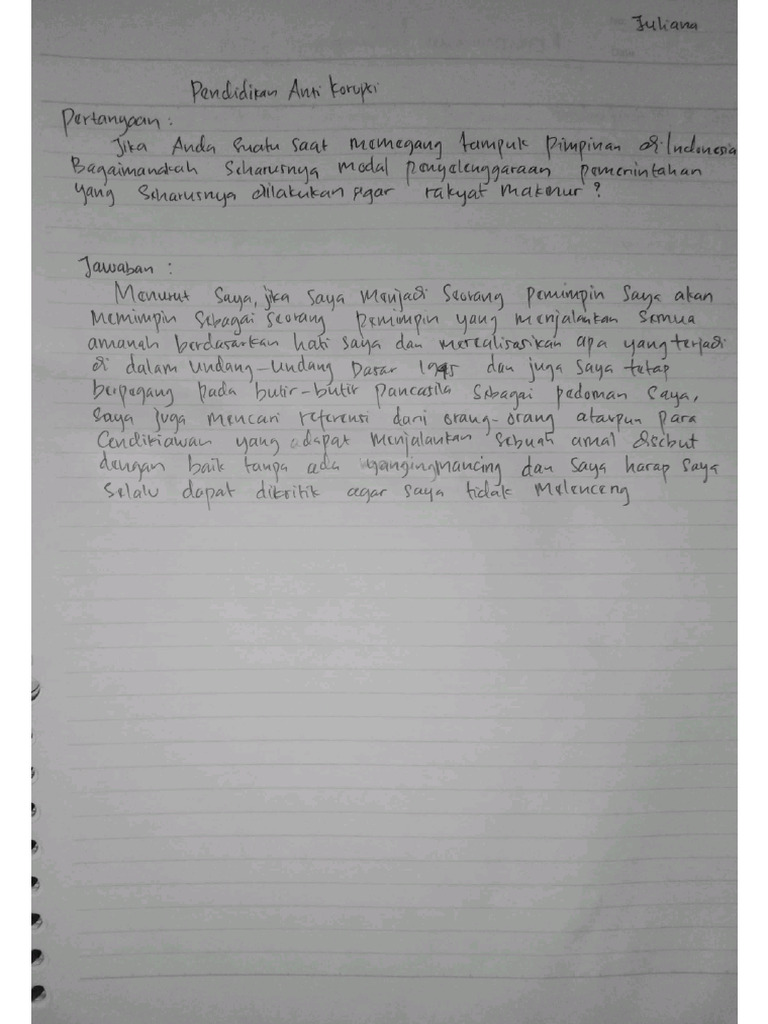 Juliana
Pendidikan Anti Korupsi
Pertanyaan :
Jika Anda Suatu saat memegang tampuk pimpinan di Indonesia
Bagaimanakah Seharusnya modal penyelenggaraan pemerintahan
yang Seharusnya dilakukan agar rakyat makmur ?
Jawaban :
Menurut saya, jika saya menjadi seorang pemimpin saya akan
memimpin sebagai seorang pemimpin yang menjalankan semua
amanah berdasarkan hati saya dan merealisasikan apa yang terjadi
di dalam Undang-Undang Dasar 1945 dan juga saya tetap
berpegang pada butir-butir pancasila sebagai pedoman saya,
saya juga mencari referensi dari orang-orang ataupun para
Cendikiawan yang dapat menjalankan sebuah amal disebut
dengan baik tanpa ada dan saya harap saya
selalu dapat dikritik agar saya tidak melenceng